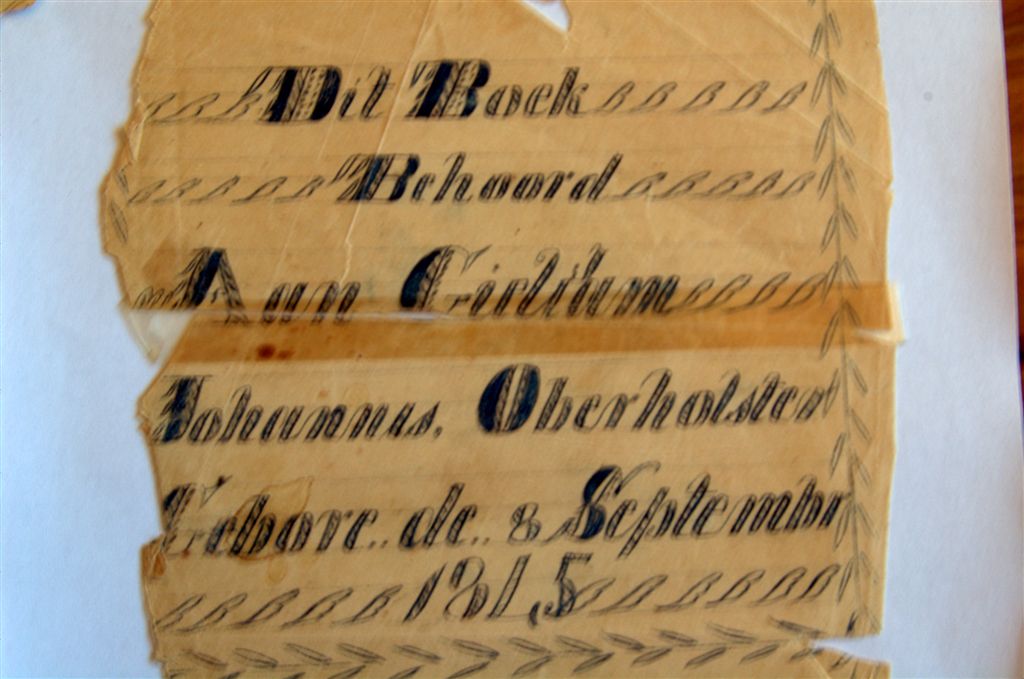 Dit Boek
Behoord
Aan
Johannus. Oberholster
Gebore.. de.. 8 Septembr
1815